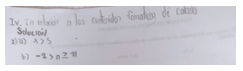 Iv, en relacion a los contenidos tematicos de calculo
Solución
1) a) x > 5
b) -2 > n ≥ -11